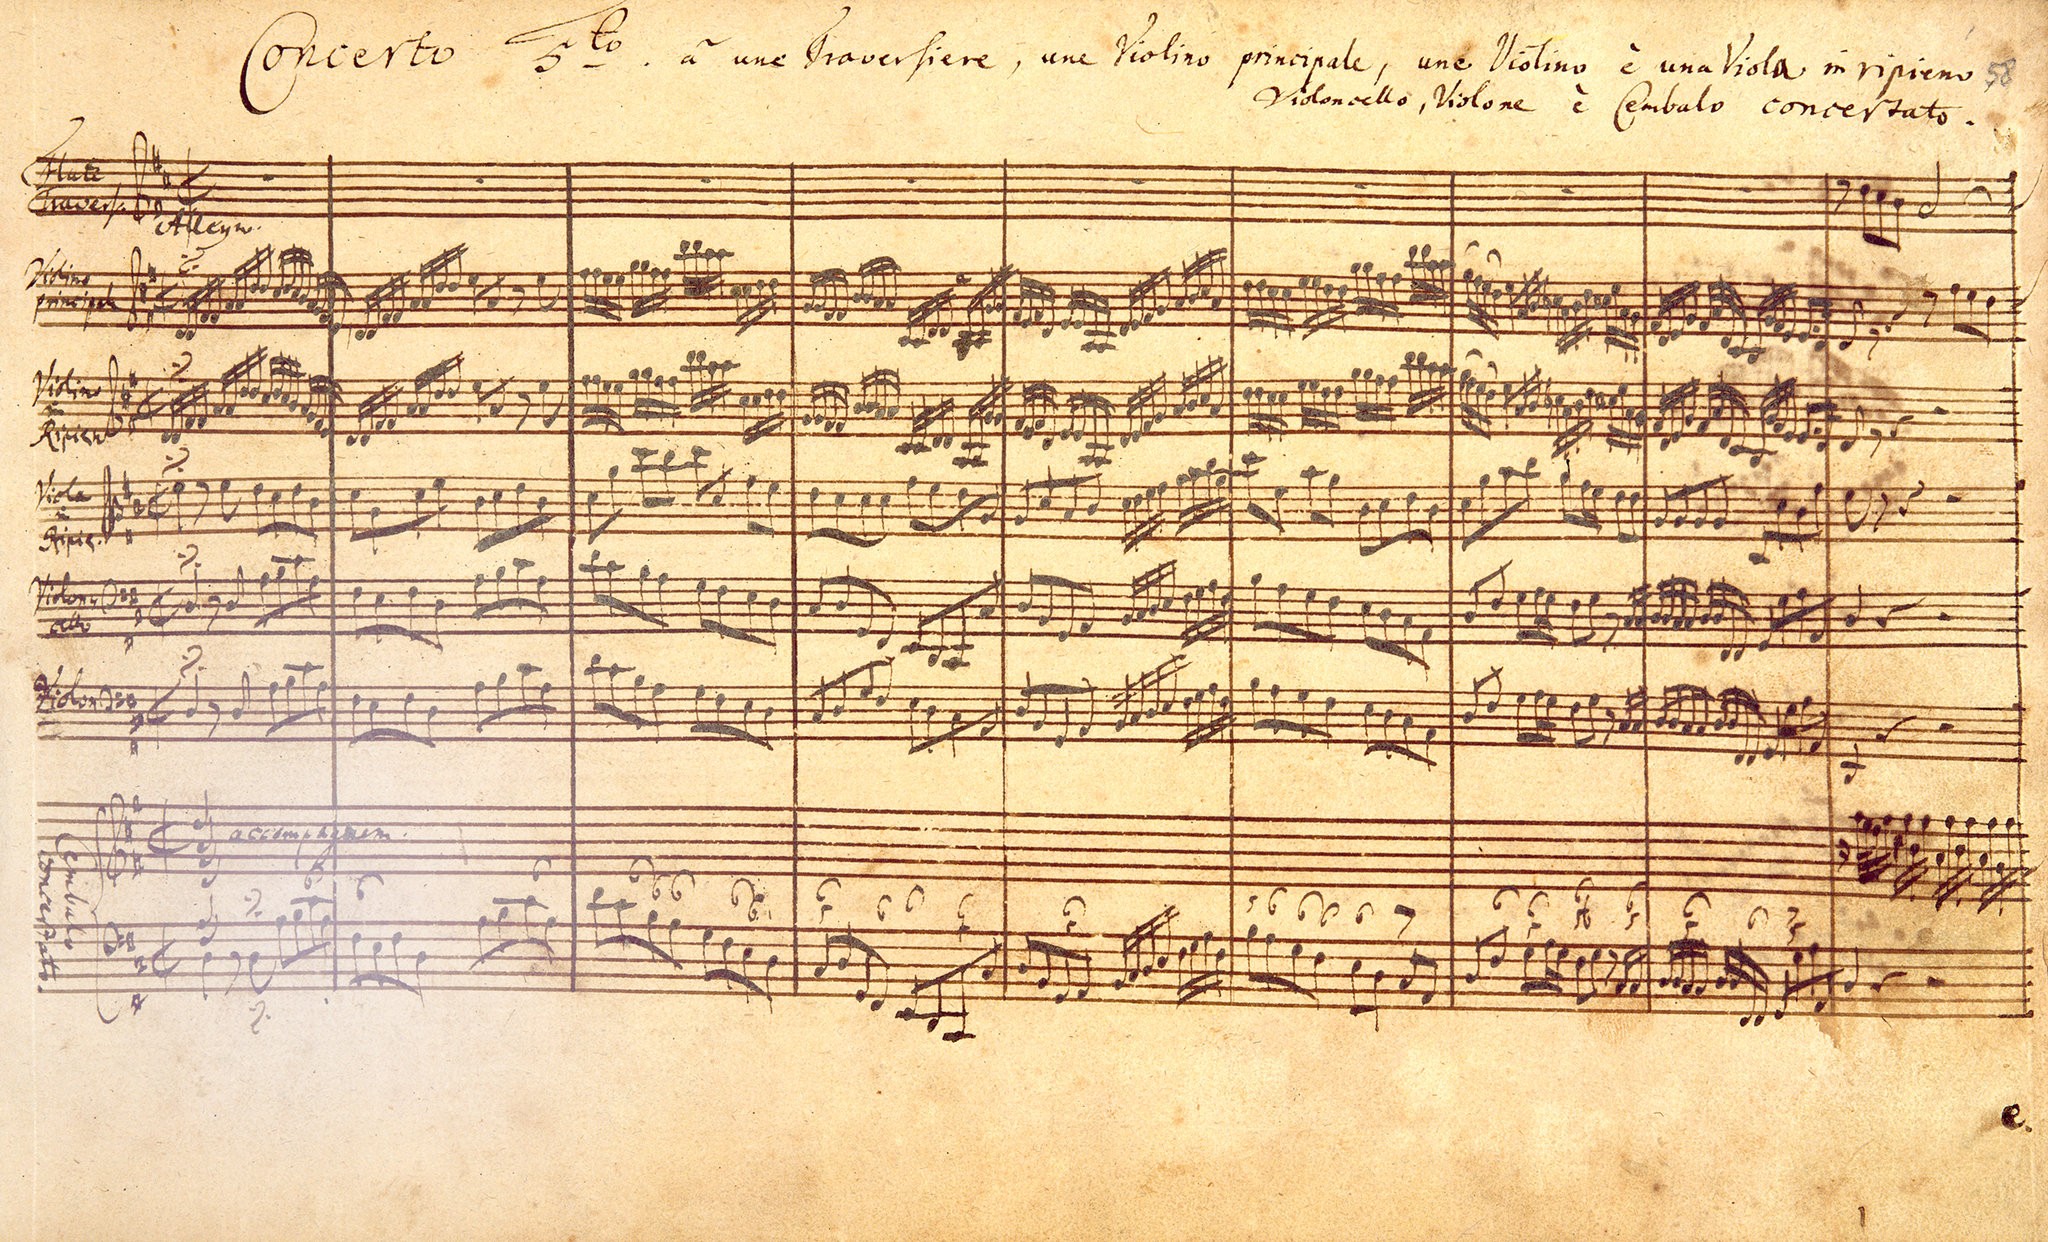 Concerto 5to. à une Traversiere, une Violino principale, une Violino è una Viola in ripieno 58
Violoncello, Violone è Cembalo concertato.
Flute
Travers.
Allegro.
Violino
principale
Violino
in
Ripien
Viola
in
Ripie.
Violon
cello
Violon
accompagnem.
Cembalo
concertato.